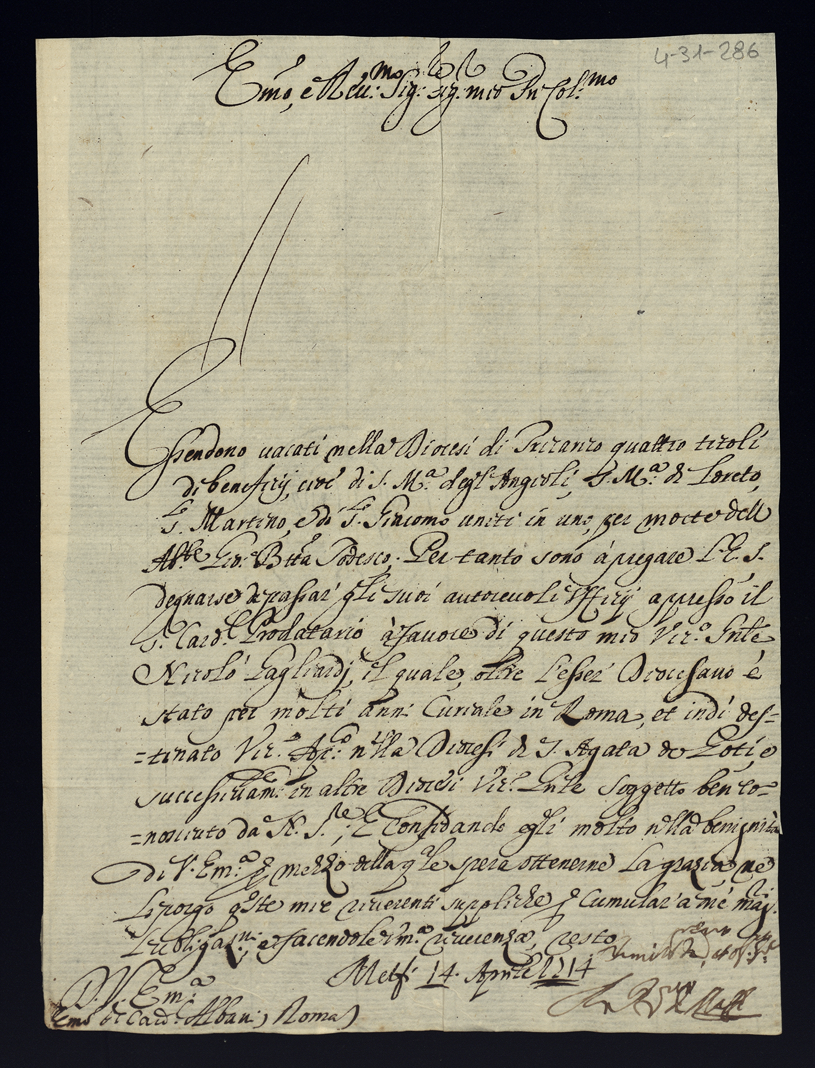 4-31-286
Emo, e Reu:mo Sig: Sig: mio Pn Col:mo
Essendono uacati nella Diocesi di quattro titoli
di beneficij, cioè di S. M.a degl'Angioli, S. M.a di Loreto,
S. Martino, e di S. Giacomo uniti in uno, per morte dell
Abbe Gio: Btta Todesco; Per tanto sono à pregare l'E. S.
degnarse di passar' gli suoi autoreuoli Officij appresso il
S. Card.l Prodatario à fauore di questo mio Vic.o Gnle
Nicolò Gagliardi, il quale, oltre l'esser' Diocesano è
stato per molti anni Curiale in Roma, et indi des-
=tinato Vic.o Ap:co nella Diocesi di S. Agata de Goti, e
successiuam:te in altre Diocesi Vic.o Gnle soggetto ben co=
=nosciuto da N. S.re; E Confidando egli molto nella benignità
di V. Em.a p mezzo della qle spera ottenerne la grazia, ne
li porgo qste mie riuerenti suppliche p Cumular' a me mag.ri
l'obligazni; e facendole um.a riuerenza, resto
Melfi 14. Aprile 1714
D. V. Em.a
Emo Sr Card: Albani Roma)